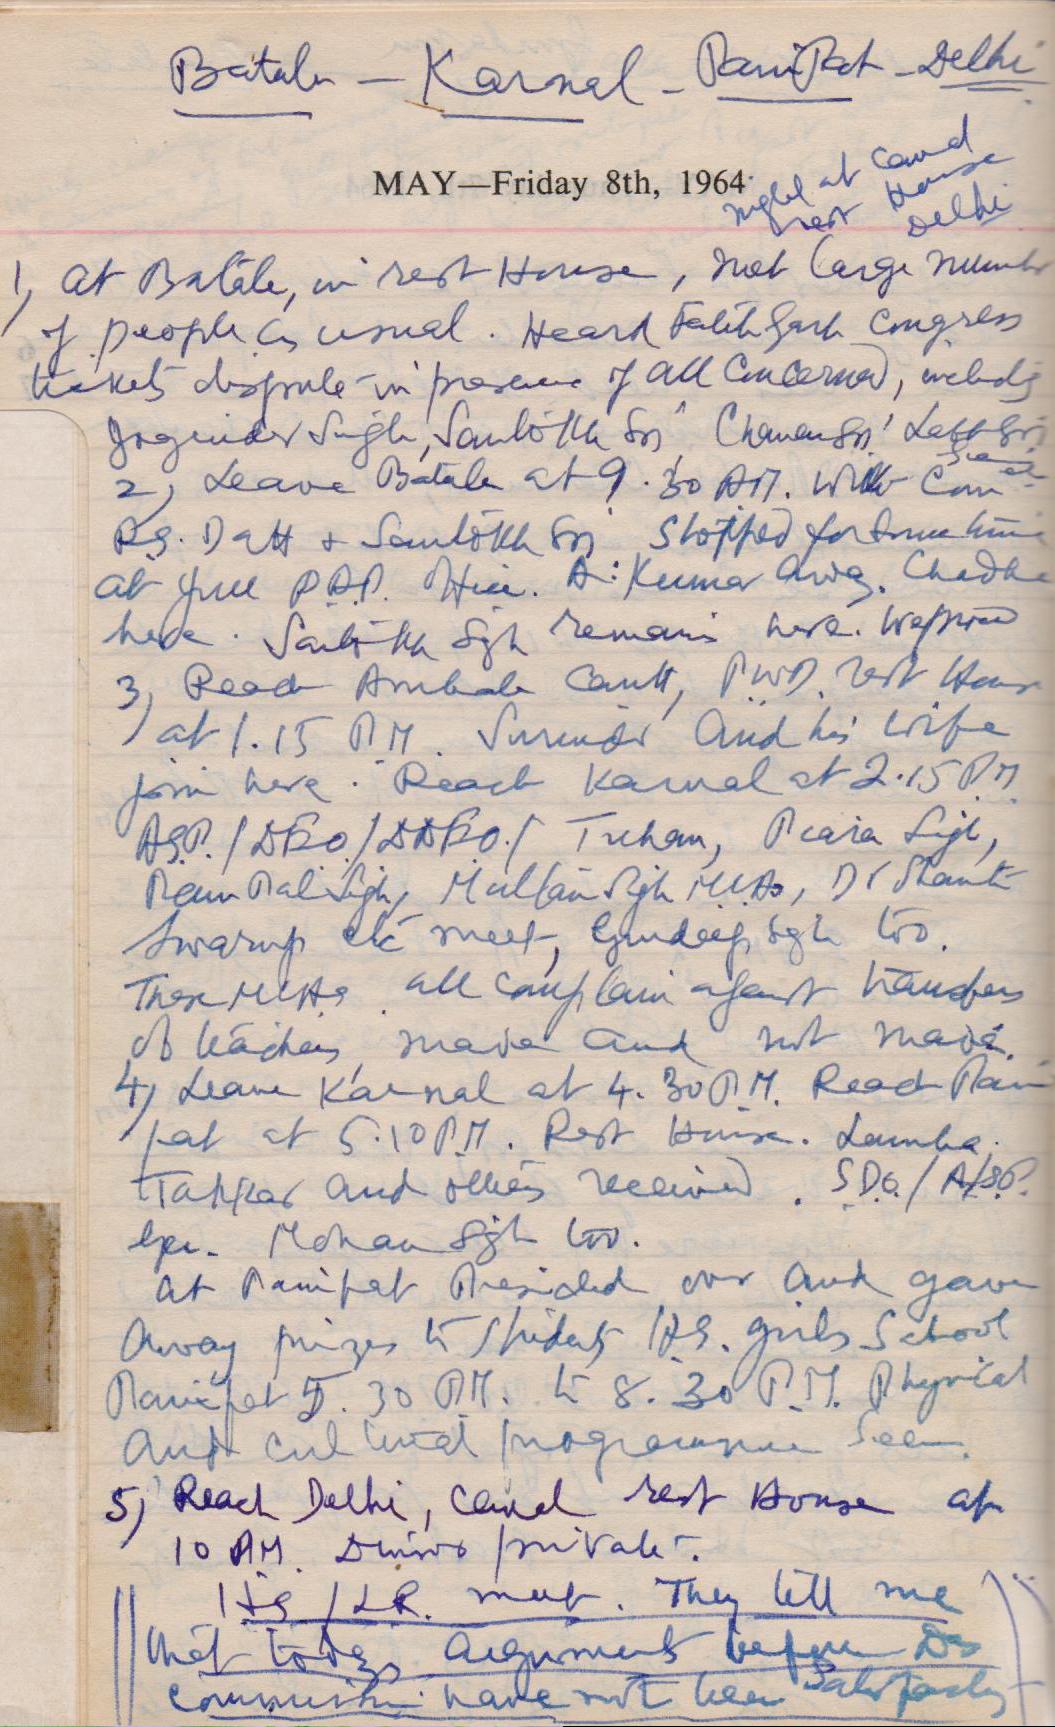 Batala - Karnal - Panipat - Delhi
MAY—Friday 8th, 1964
night at Canal
rest House
Delhi
1, at Batala, in rest House, met large number
of people as usual. Heard Fatehgarh Congress
tickets dispute in presence of all concerned, including
Joginder Singh, Santokh Sgh
2, Leave Batala at 9.30 AM. With Com
R.S. Datt + Santokh Sgh Stopped for some time
at Jull P.A.P. Office. Kumar Chadha
here. Santokh Sgh remains here.
3, Reach Ambala Cantt, P.W.D. rest House
at 1.15 P.M. Surinder and his wife
join here. Reach Karnal at 2.15 P.M
/ Piara Singh,
Ram Pal Singh, Multan Singh MLAs, Dr Shanti
Swarup etc meet, Gurdeep Sgh too.
These MLAs all complain against transfers
of teachers, made and not made.
4, Leave Karnal at 4.30 P.M. Reach Pani
pat at 5.10 P.M. Rest House. Lamba
and others received. S.D.O./A/S.P.
Mohan Sgh too.
at Panipat Presided over and gave
away prizes to students H.S. girls School
Panipat 5.30 P.M. to 8.30 P.M. Physical
and cultural programme seen.
5, Reach Delhi, Canal rest House at
10 P.M. Dinner private.
HS / LR. meet. They tell me
that today's arguments before Das
commission have not been Satisfactory